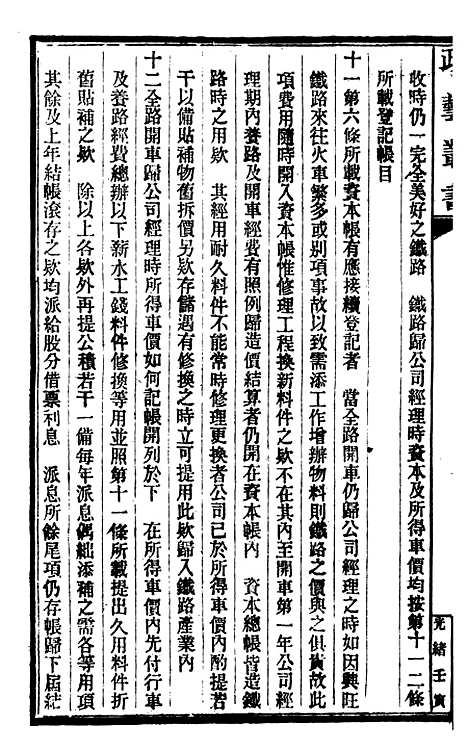 政藝叢書
收時仍一完全美好之鐵路　鐵路歸公司經理時資本及所得車價均按第十一二條
所載登記帳目
十一第六條所載資本帳有應接續登記者　當全路開車仍歸公司經理之時如因興旺
鐵路來往火車繁多或別項事故以致需添工作增辦物料則鐵路之價與之俱貴故此
項費用隨時開入資本帳惟修理工程換新料件之欵不在其內至開車第一年公司經
理期內養路及開車經費有照例歸造價結算者仍開在資本帳內　資本總帳皆造鐵
路時之用欵　其經用耐久料件不能常時修理更換者公司已於所得車價內酌提若
干以備貼補物舊拆價另欵存儲遇有修換之時立可提用此欵歸入鐵路產業內
十二全路開車歸公司經理時所得車價如何記帳開列於下　在所得車價內先付行車
及養路經費總辦以下薪水工錢料件修換等用並照第十一條所載提出久用料件折
舊貼補之欵　除以上各欵外再提公積若干一備每年派息偶絀添補之需各等用項
其餘及上年結帳滾存之欵均派給股分借票利息　派息所餘尾項仍存帳歸下屆結
光緒壬寅